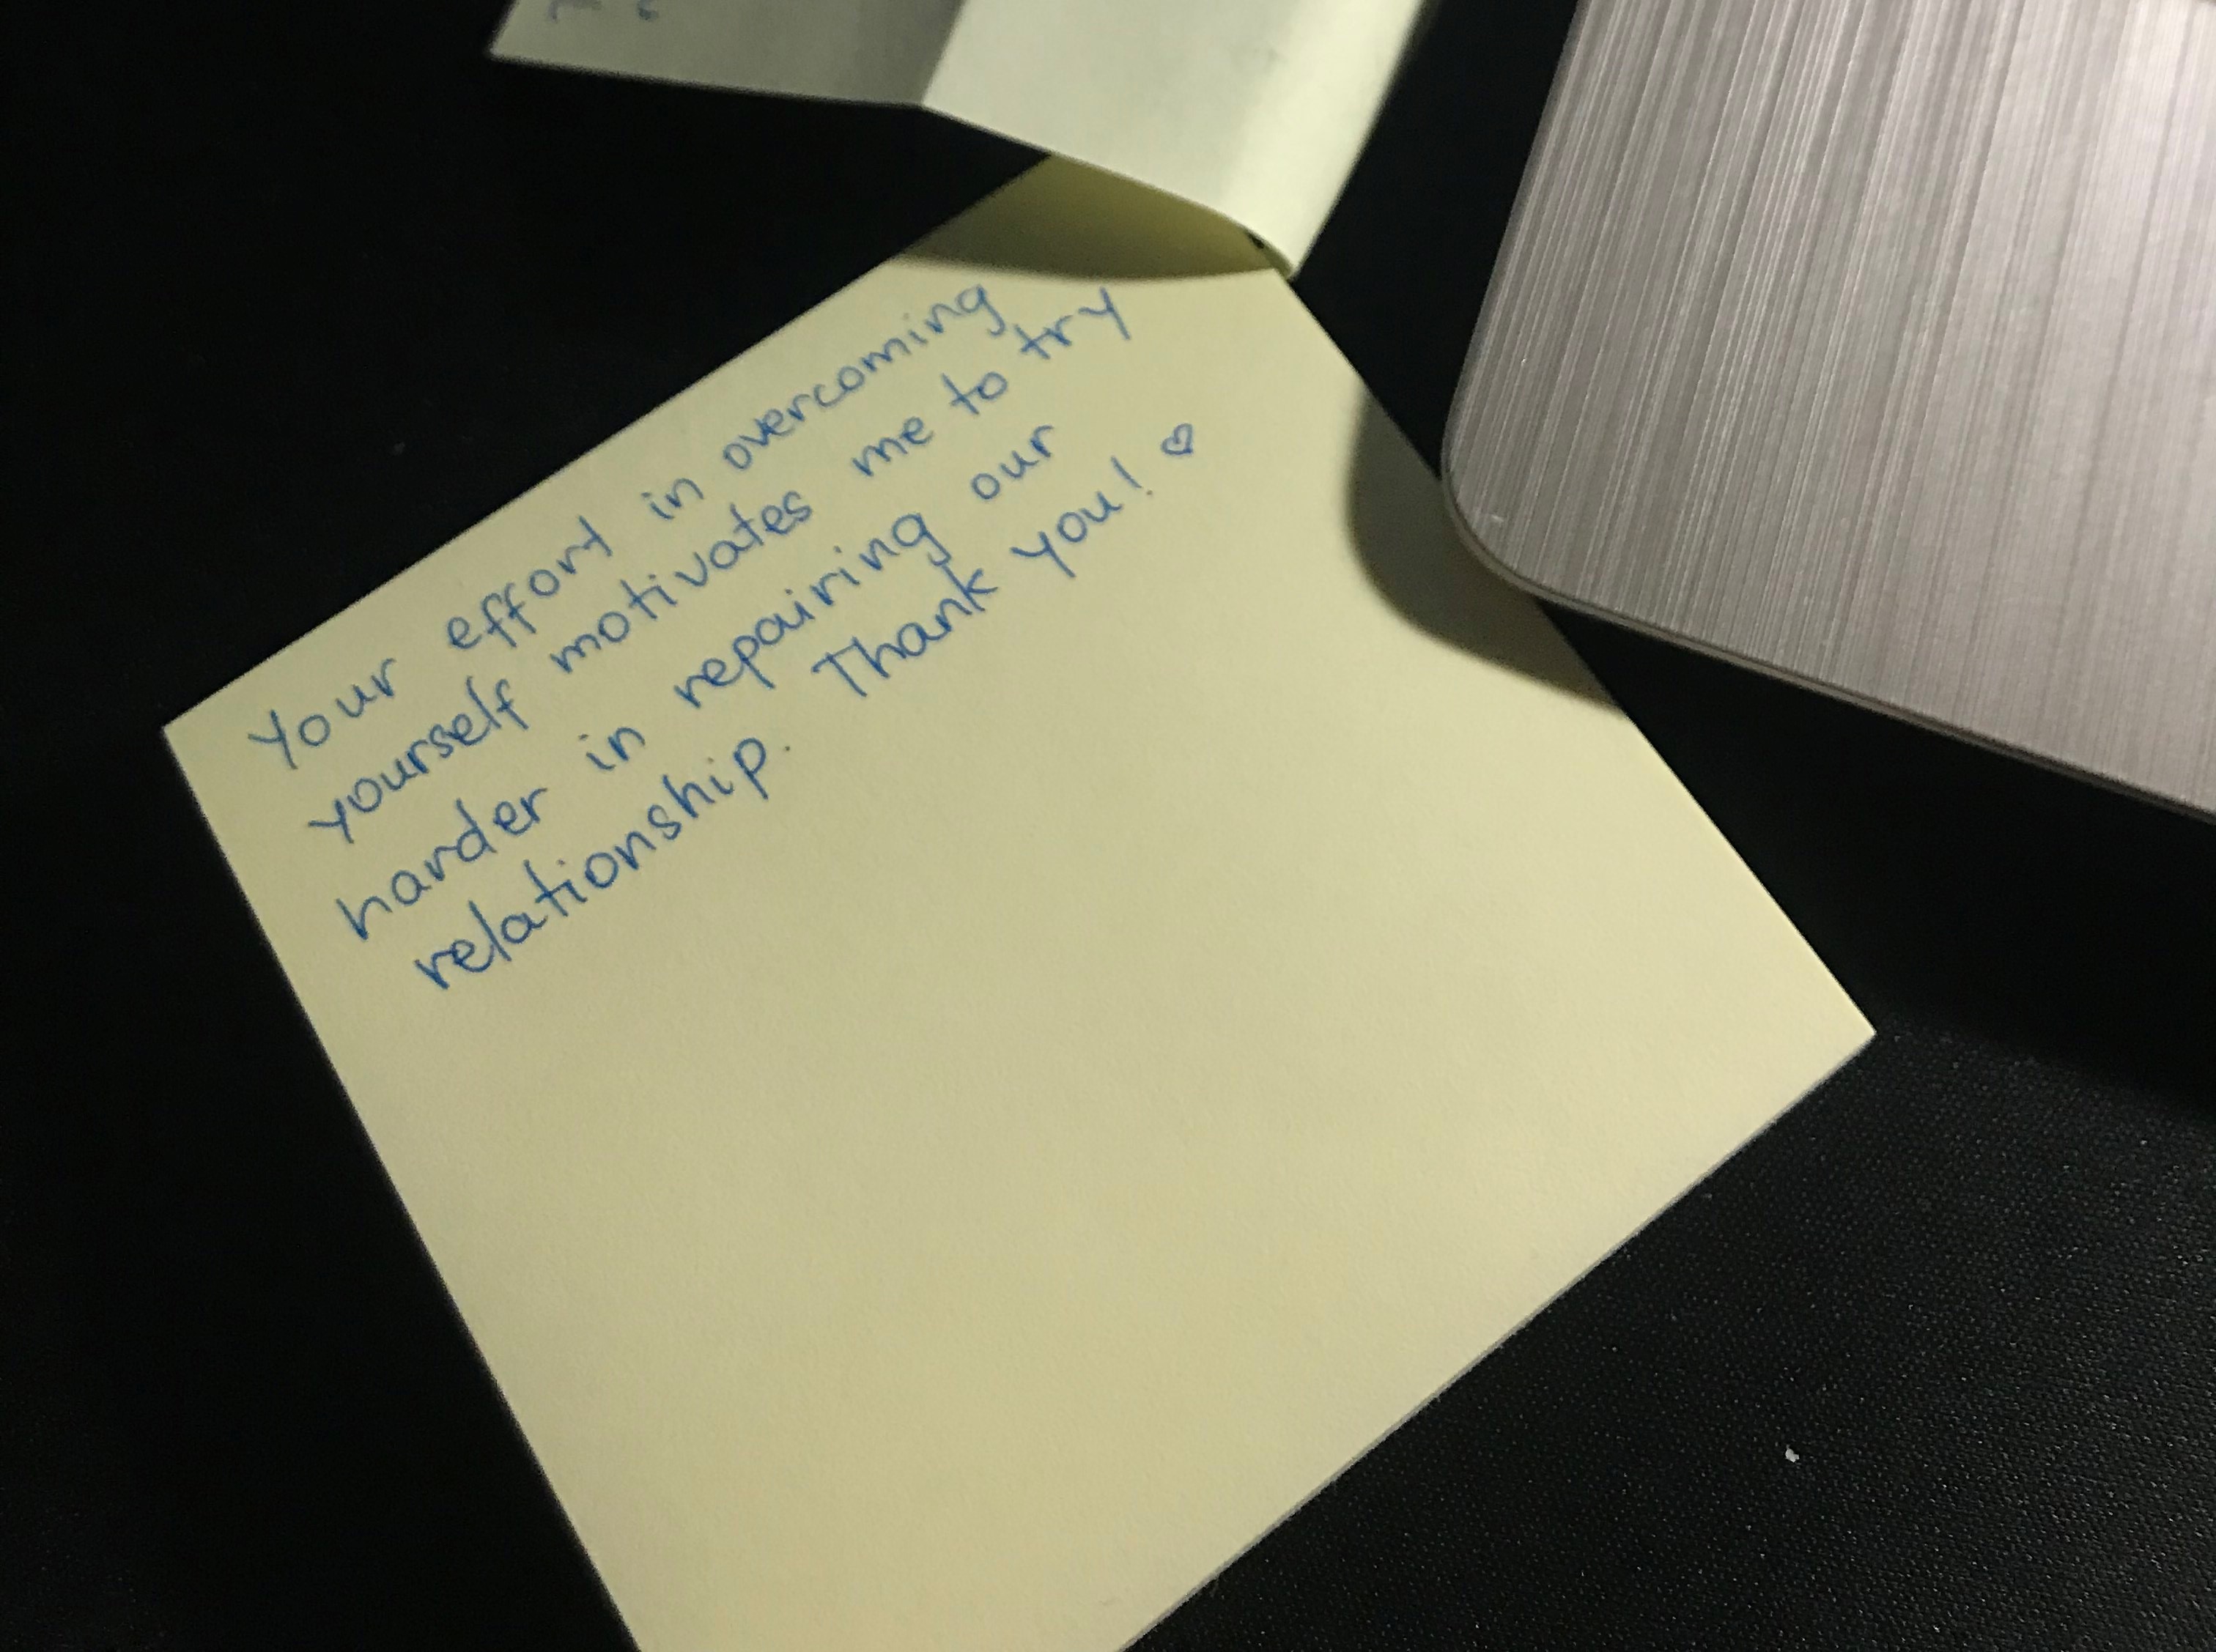 Your effort in overcoming
yourself motivates me to try
harder in repairing our
relationship. Thank you! ♡